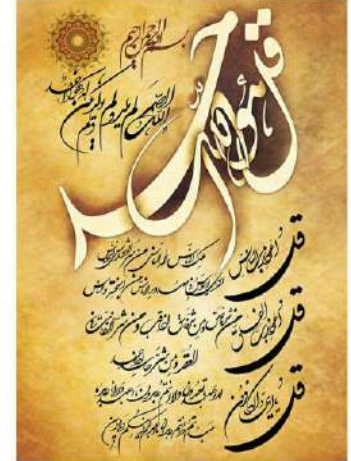 بسم الله الرحمن الرحيم
قل هو الله أحد
الله الصمد لم يلد ولم يولد ولم يكن له كفوا أحد
قل أعوذ برب الناس ملك الناس اله الناس من شر الوسواس الخناس
الذي يوسوس في صدور الناس من الجنة والناس
قل أعوذ برب الفلق من شر ما خلق ومن شر غاسق اذا وقب ومن شر النفاثات في
العقد ومن شر حاسد اذا حسد
قل يا ايها الكافرون لا اعبد ما تعبدون ولا انتم عابدون ما اعبد ولا انا عابد ما
عبدتم ولا انتم عابدون ما اعبد لكم دينكم ولي دين